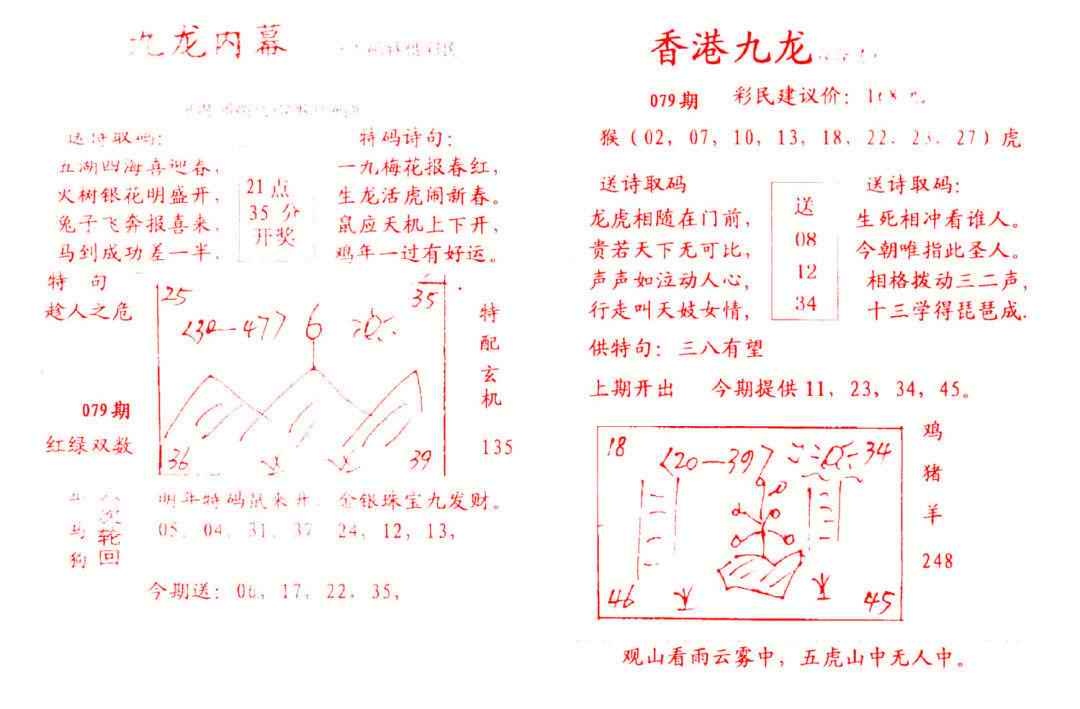 九龙内幕
送诗取码:
五湖四海喜迎春,
火树银花明盛开,
兔子飞奔报喜来.
马到成功差一半.
21点
35分
开奖
特码诗句:
一九梅花报春红,
生龙活虎闹新春。
鼠应天机上下开,
鸡年一过有好运。
特 句
趁人之危
079期
红绿双数
25
35
<30-477 6
36
39
特配玄机
135
马
狗
轮回
明年特码鼠来开, 金银珠宝九发财。
05, 04, 31, 37 24, 12, 13,
今期送: 06, 17, 22, 35,
香港九龙
079期 彩民建议价:
猴(02, 07, 10, 13, 18, 22. 23. 27)虎
送诗取码
龙虎相随在门前,
贵若天下无可比,
声声如泣动人心,
行走叫天妓女情,
送
08
12
34
送诗取码:
生死相冲看谁人。
今朝唯指此圣人。
相格拨动三二声,
十三学得琵琶成.
供特句: 三八有望
上期开出 今期提供11, 23, 34, 45。
18
<20-397
34
46
45
鸡
猪
羊
248
观山看雨云雾中, 五虎山中无人中。